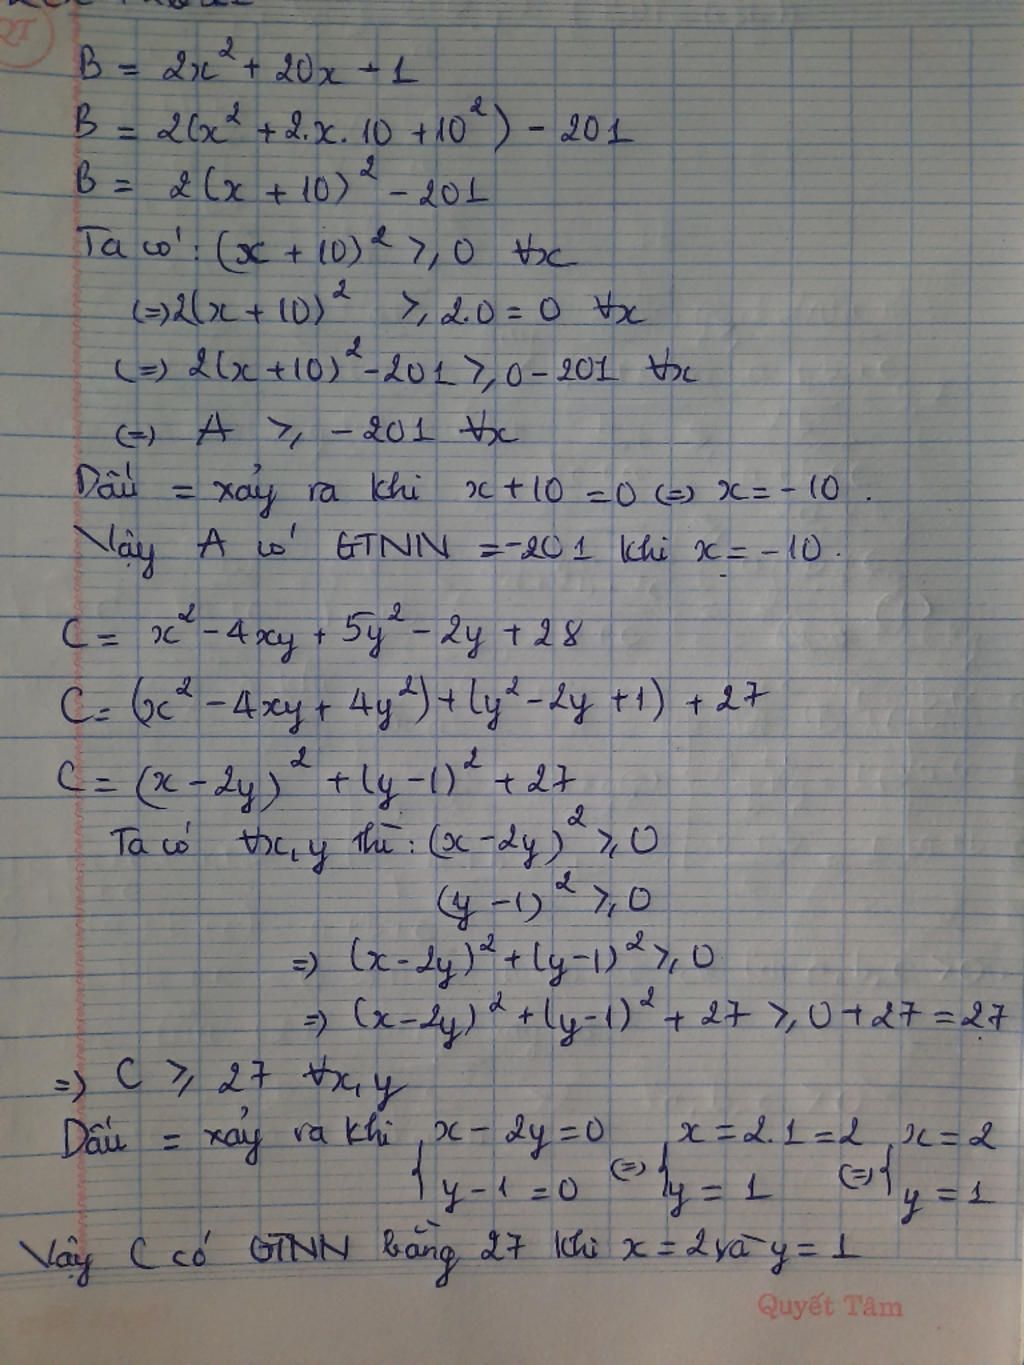 B = 2x² + 20x - 1
B = 2(x² + 2.x.10 + 10²) - 201
B = 2(x + 10)² - 201
Ta có: (x + 10)² ≥ 0 ∀x
(=) 2(x + 10)² ≥ 2.0 = 0 ∀x
(=) 2(x + 10)² - 201 ≥ 0 - 201 ∀x
(=) A ≥ - 201 ∀x
Dấu = xảy ra khi x + 10 = 0 (=) x = - 10.
Vậy A có GTNN = -201 khi x = - 10.
C = x² - 4xy + 5y² - 2y + 28
C = (x² - 4xy + 4y²) + (y² - 2y + 1) + 27
C = (x - 2y)² + (y - 1)² + 27
Ta có ∀x, y thì: (x - 2y)² ≥ 0
(y - 1)² ≥ 0
=) (x - 2y)² + (y - 1)² ≥ 0
=) (x - 2y)² + (y - 1)² + 27 ≥ 0 + 27 = 27
=) C ≥ 27 ∀x, y
Dấu = xảy ra khi { x - 2y = 0 (=) { x = 2.1 = 2 (=) { x = 2
y - 1 = 0 y = 1 y = 1
Vậy C có GTNN bằng 27 khi x = 2 và y = 1
Quyết Tâm